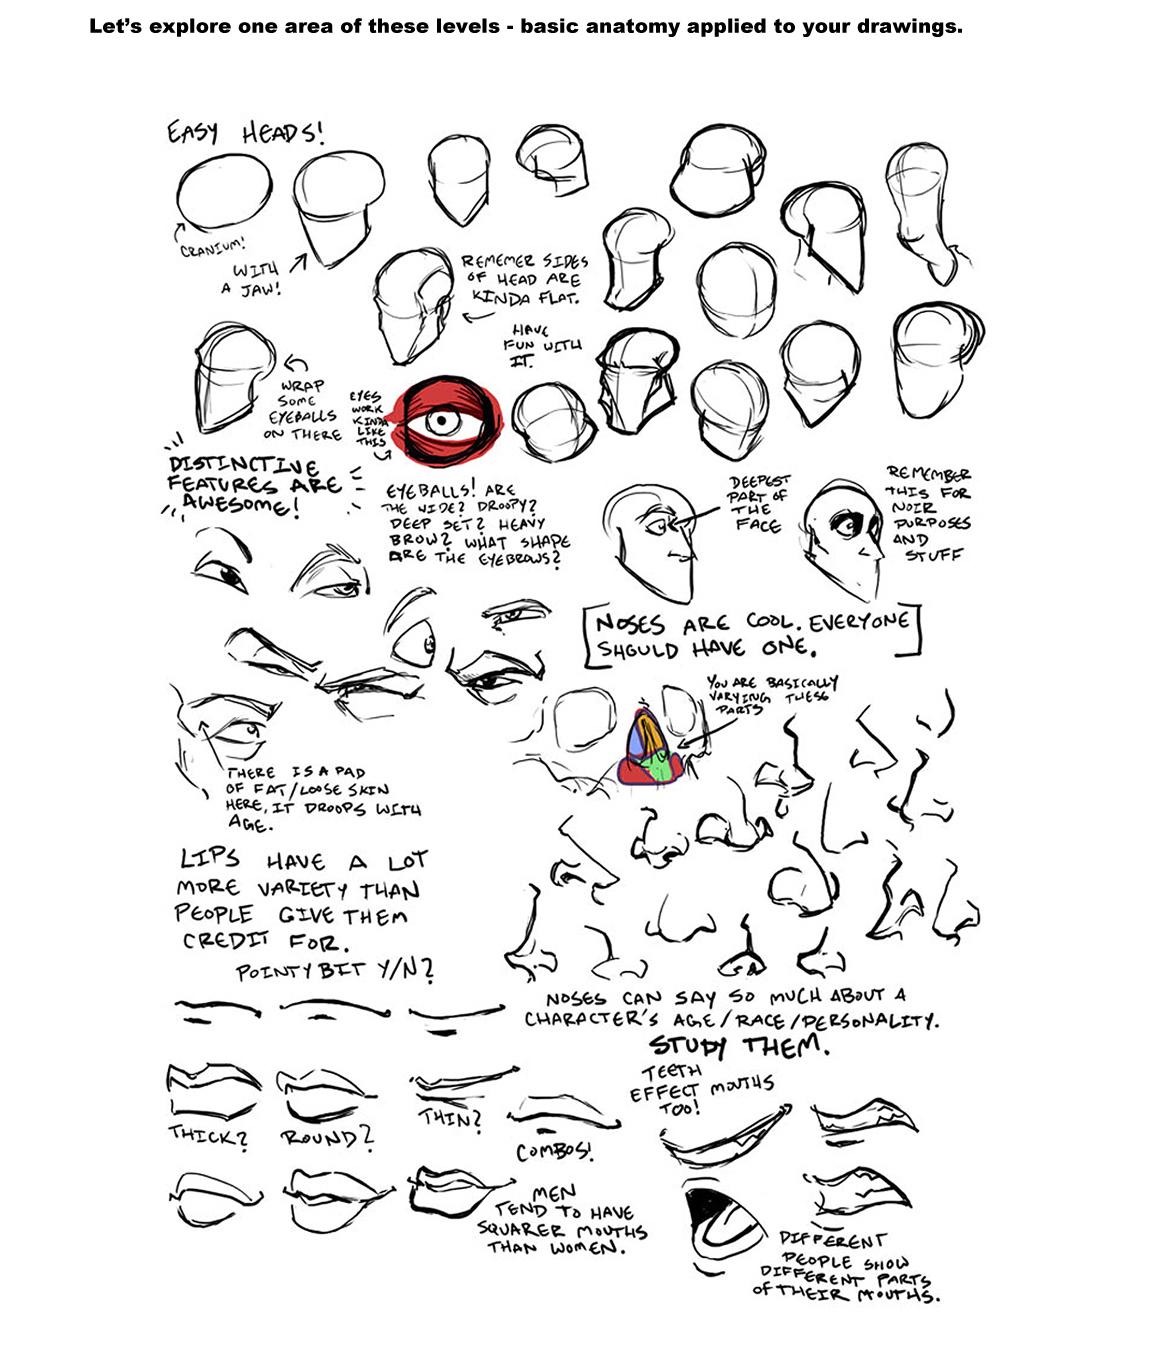 Let's explore one area of these levels - basic anatomy applied to your drawings.
EASY HEADS!
CRANIUM!
WITH
A JAW!
REMEMER SIDES
OF HEAD ARE
KINDA FLAT.
HAVE
FUN WITH
IT.
WRAP
SOME
EYEBALLS
ON THERE
EYES
WORK
KINDA
LIKE
THIS
DISTINCTIVE
FEATURES ARE
AWESOME!
EYEBALLS! ARE
THE WIDE? DROOPY?
DEEP SET? HEAVY
BROW? WHAT SHAPE
ARE THE EYEBROWS?
DEEPEST
PART OF
THE
FACE
REMEMBER
THIS FOR
NOIR
PURPOSES
AND
STUFF
NOSES ARE COOL. EVERYONE
SHOULD HAVE ONE.
YOU ARE BASICALLY
VARYING THESE
PARTS
THERE IS A PAD
OF FAT/LOOSE SKIN
HERE, IT DROOPS WITH
AGE.
LIPS HAVE A LOT
MORE VARIETY THAN
PEOPLE GIVE THEM
CREDIT FOR.
POINTY BIT Y/N?
NOSES CAN SAY SO MUCH ABOUT A
CHARACTER'S AGE/RACE/PERSONALITY.
STUDY THEM.
TEETH
EFFECT MOUTHS
TOO!
THICK?
ROUND?
THIN?
COMBOS!
MEN
TEND TO HAVE
SQUARER MOUTHS
THAN WOMEN.
DIFFERENT
PEOPLE SHOW
DIFFERENT PARTS
OF THEIR MOUTHS.